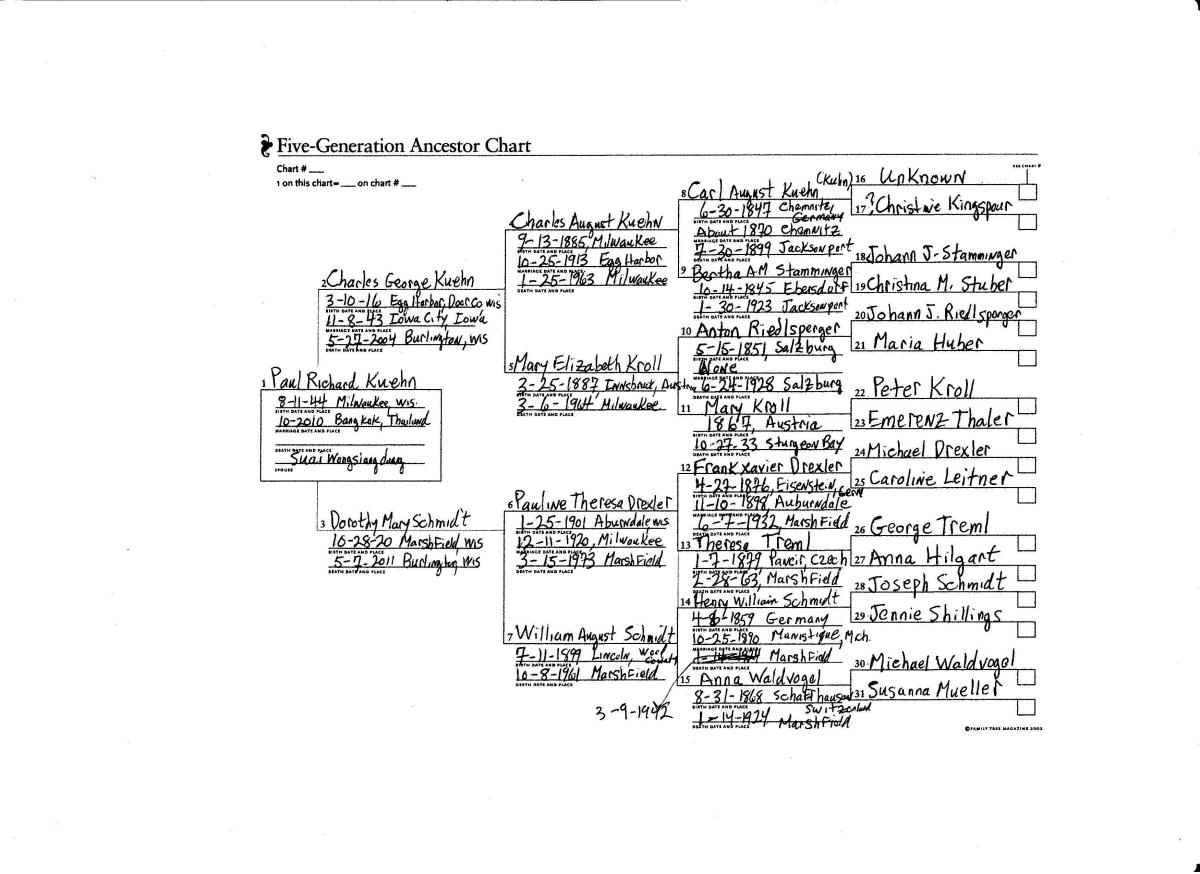 Five-Generation Ancestor Chart
Chart # ___
1 on this chart= ___ on chart # ___
SEE CHART #
1 Paul Richard Kuehn
8-11-44 Milwaukee, Wis.
BIRTH DATE AND PLACE
10-2010 Bangkok, Thailand
MARRIAGE DATE AND PLACE
DEATH DATE AND PLACE
Suai Wongsiangdang
SPOUSE
2 Charles George Kuehn
3-10-16 Egg Harbor, Door Co Wis
BIRTH DATE AND PLACE
11-8-43 Iowa City, Iowa
MARRIAGE DATE AND PLACE
5-27-2004 Burlington, WIS
DEATH DATE AND PLACE
3 Dorothy Mary Schmidt
10-28-20 Marshfield, WIS
BIRTH DATE AND PLACE
5-7-2011 Burlington, WIS
DEATH DATE AND PLACE
Charles August Kuehn
9-13-1885, Milwaukee
BIRTH DATE AND PLACE
10-25-1913 Egg Harbor
MARRIAGE DATE AND PLACE
1-25-1963 Milwaukee
DEATH DATE AND PLACE
5 Mary Elizabeth Kroll
3-25-1887 Innsbruck, Austria
BIRTH DATE AND PLACE
3-6-1964 Milwaukee
DEATH DATE AND PLACE
6 Pauline Theresa Drexler
1-25-1901 Aburndale WIS
BIRTH DATE AND PLACE
12-11-1920, Milwaukee
MARRIAGE DATE AND PLACE
3-15-1973 Marshfield
DEATH DATE AND PLACE
7 William August Schmidt
7-11-1899 Lincoln, Wood County
BIRTH DATE AND PLACE
10-8-1961 Marshfield
DEATH DATE AND PLACE
8 Carl August Kuehn (Kuhn)
6-30-1847 Chemnitz, Germany
BIRTH DATE AND PLACE
About 1870 Chemnitz
MARRIAGE DATE AND PLACE
7-30-1899 Jacksonport
DEATH DATE AND PLACE
9 Bertha AM Stamminger
10-14-1845 Ebersdorf
BIRTH DATE AND PLACE
1-30-1923 Jacksonport
DEATH DATE AND PLACE
10 Anton Riedlsperger
5-15-1851, Salzburg
BIRTH DATE AND PLACE
None
MARRIAGE DATE AND PLACE
6-24-1928 Salzburg
DEATH DATE AND PLACE
11 Mary Kroll
1867, Austria
BIRTH DATE AND PLACE
10-27-33 Sturgeon Bay
DEATH DATE AND PLACE
12 Frank Xavier Drexler
4-27-1876, Eisenstein, Germ
BIRTH DATE AND PLACE
11-10-1898, Auburndale
MARRIAGE DATE AND PLACE
6-7-1932, Marshfield
DEATH DATE AND PLACE
13 Theresa Treml
1-7-1879 Pavcir, Czech
BIRTH DATE AND PLACE
2-28-63, Marshfield
DEATH DATE AND PLACE
14 Henry William Schmidt
4-8-1859 Germany
BIRTH DATE AND PLACE
10-25-1890 Manistique, Mch.
MARRIAGE DATE AND PLACE
Marshfield
DEATH DATE AND PLACE
3-9-1942
15 Anna Waldvogel
8-31-1868 Schaffhausen Switzerland
BIRTH DATE AND PLACE
1-14-1924 Marshfield
DEATH DATE AND PLACE
16 Unknown
17 ?Christine Kingspour
18 Johann J. Stamminger
19 Christina M. Stuber
20 Johann J. Riedlsperger
21 Maria Huber
22 Peter Kroll
23 Emerenz Thaler
24 Michael Drexler
25 Caroline Leitner
26 George Treml
27 Anna Hilgart
28 Joseph Schmidt
29 Jennie Shillings
30 Michael Waldvogel
31 Susanna Mueller
©FAMILY TREE MAGAZINE 2002